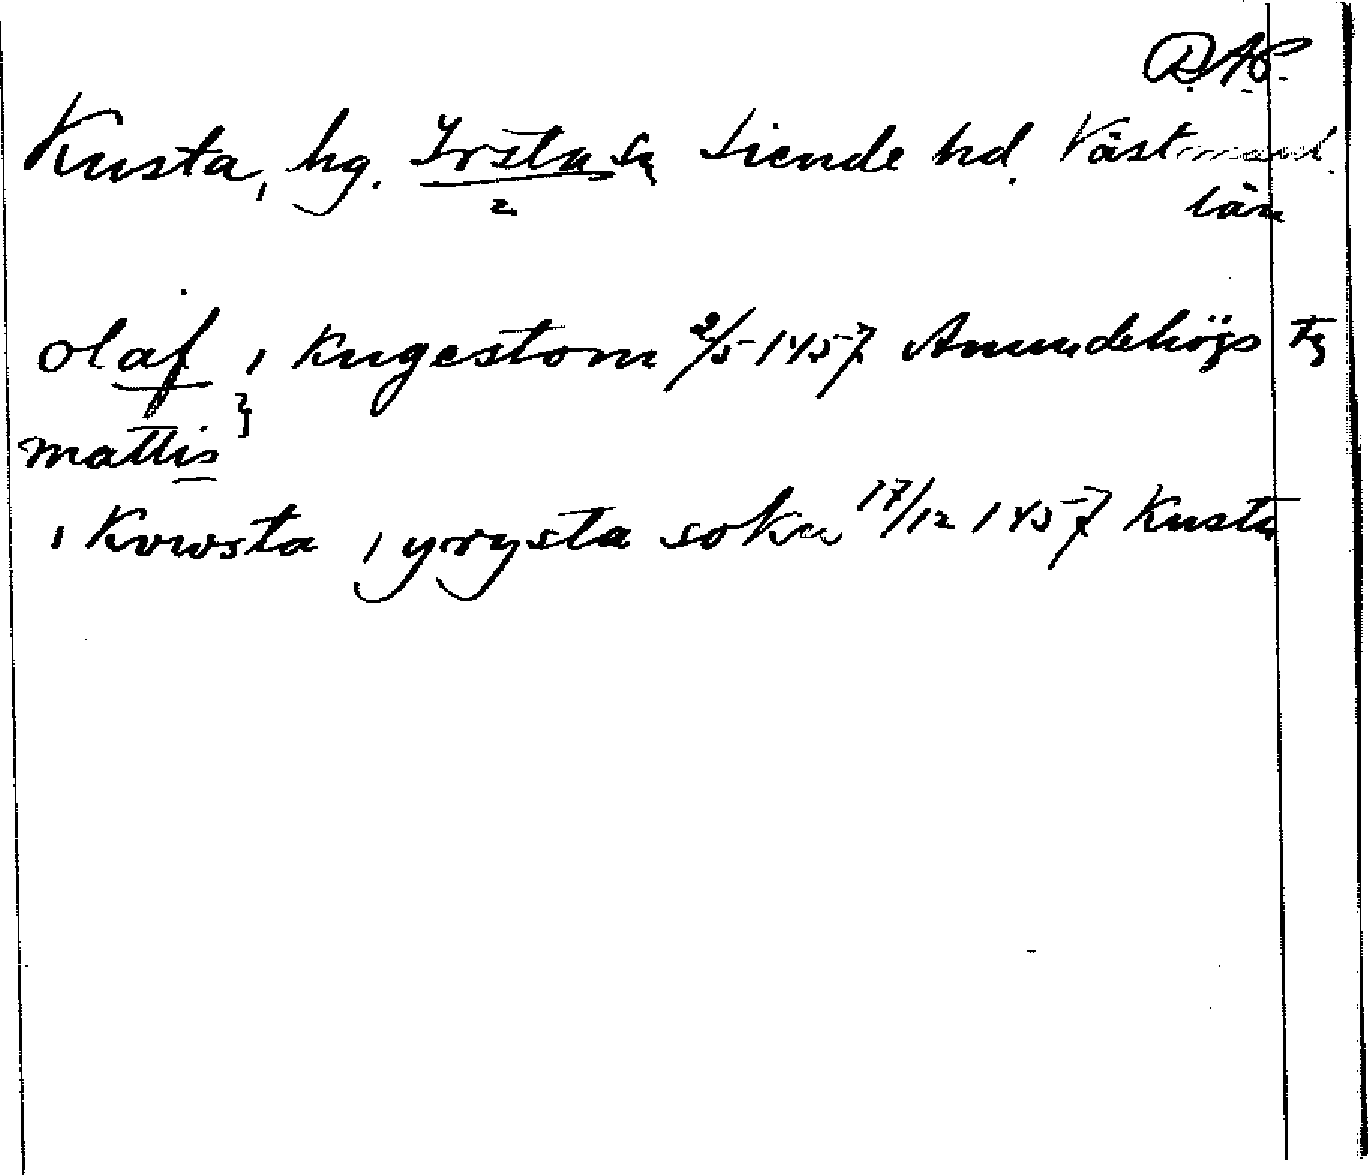 RAP.
Kusta, hg. Irsta sn Siende hd. Västmanl.
2
län
olaf } i Kugestom 2/5 1457 Anundehögs tg
mattis
i Kvwsta i yrysta sokn 17/12 1457 Kusta